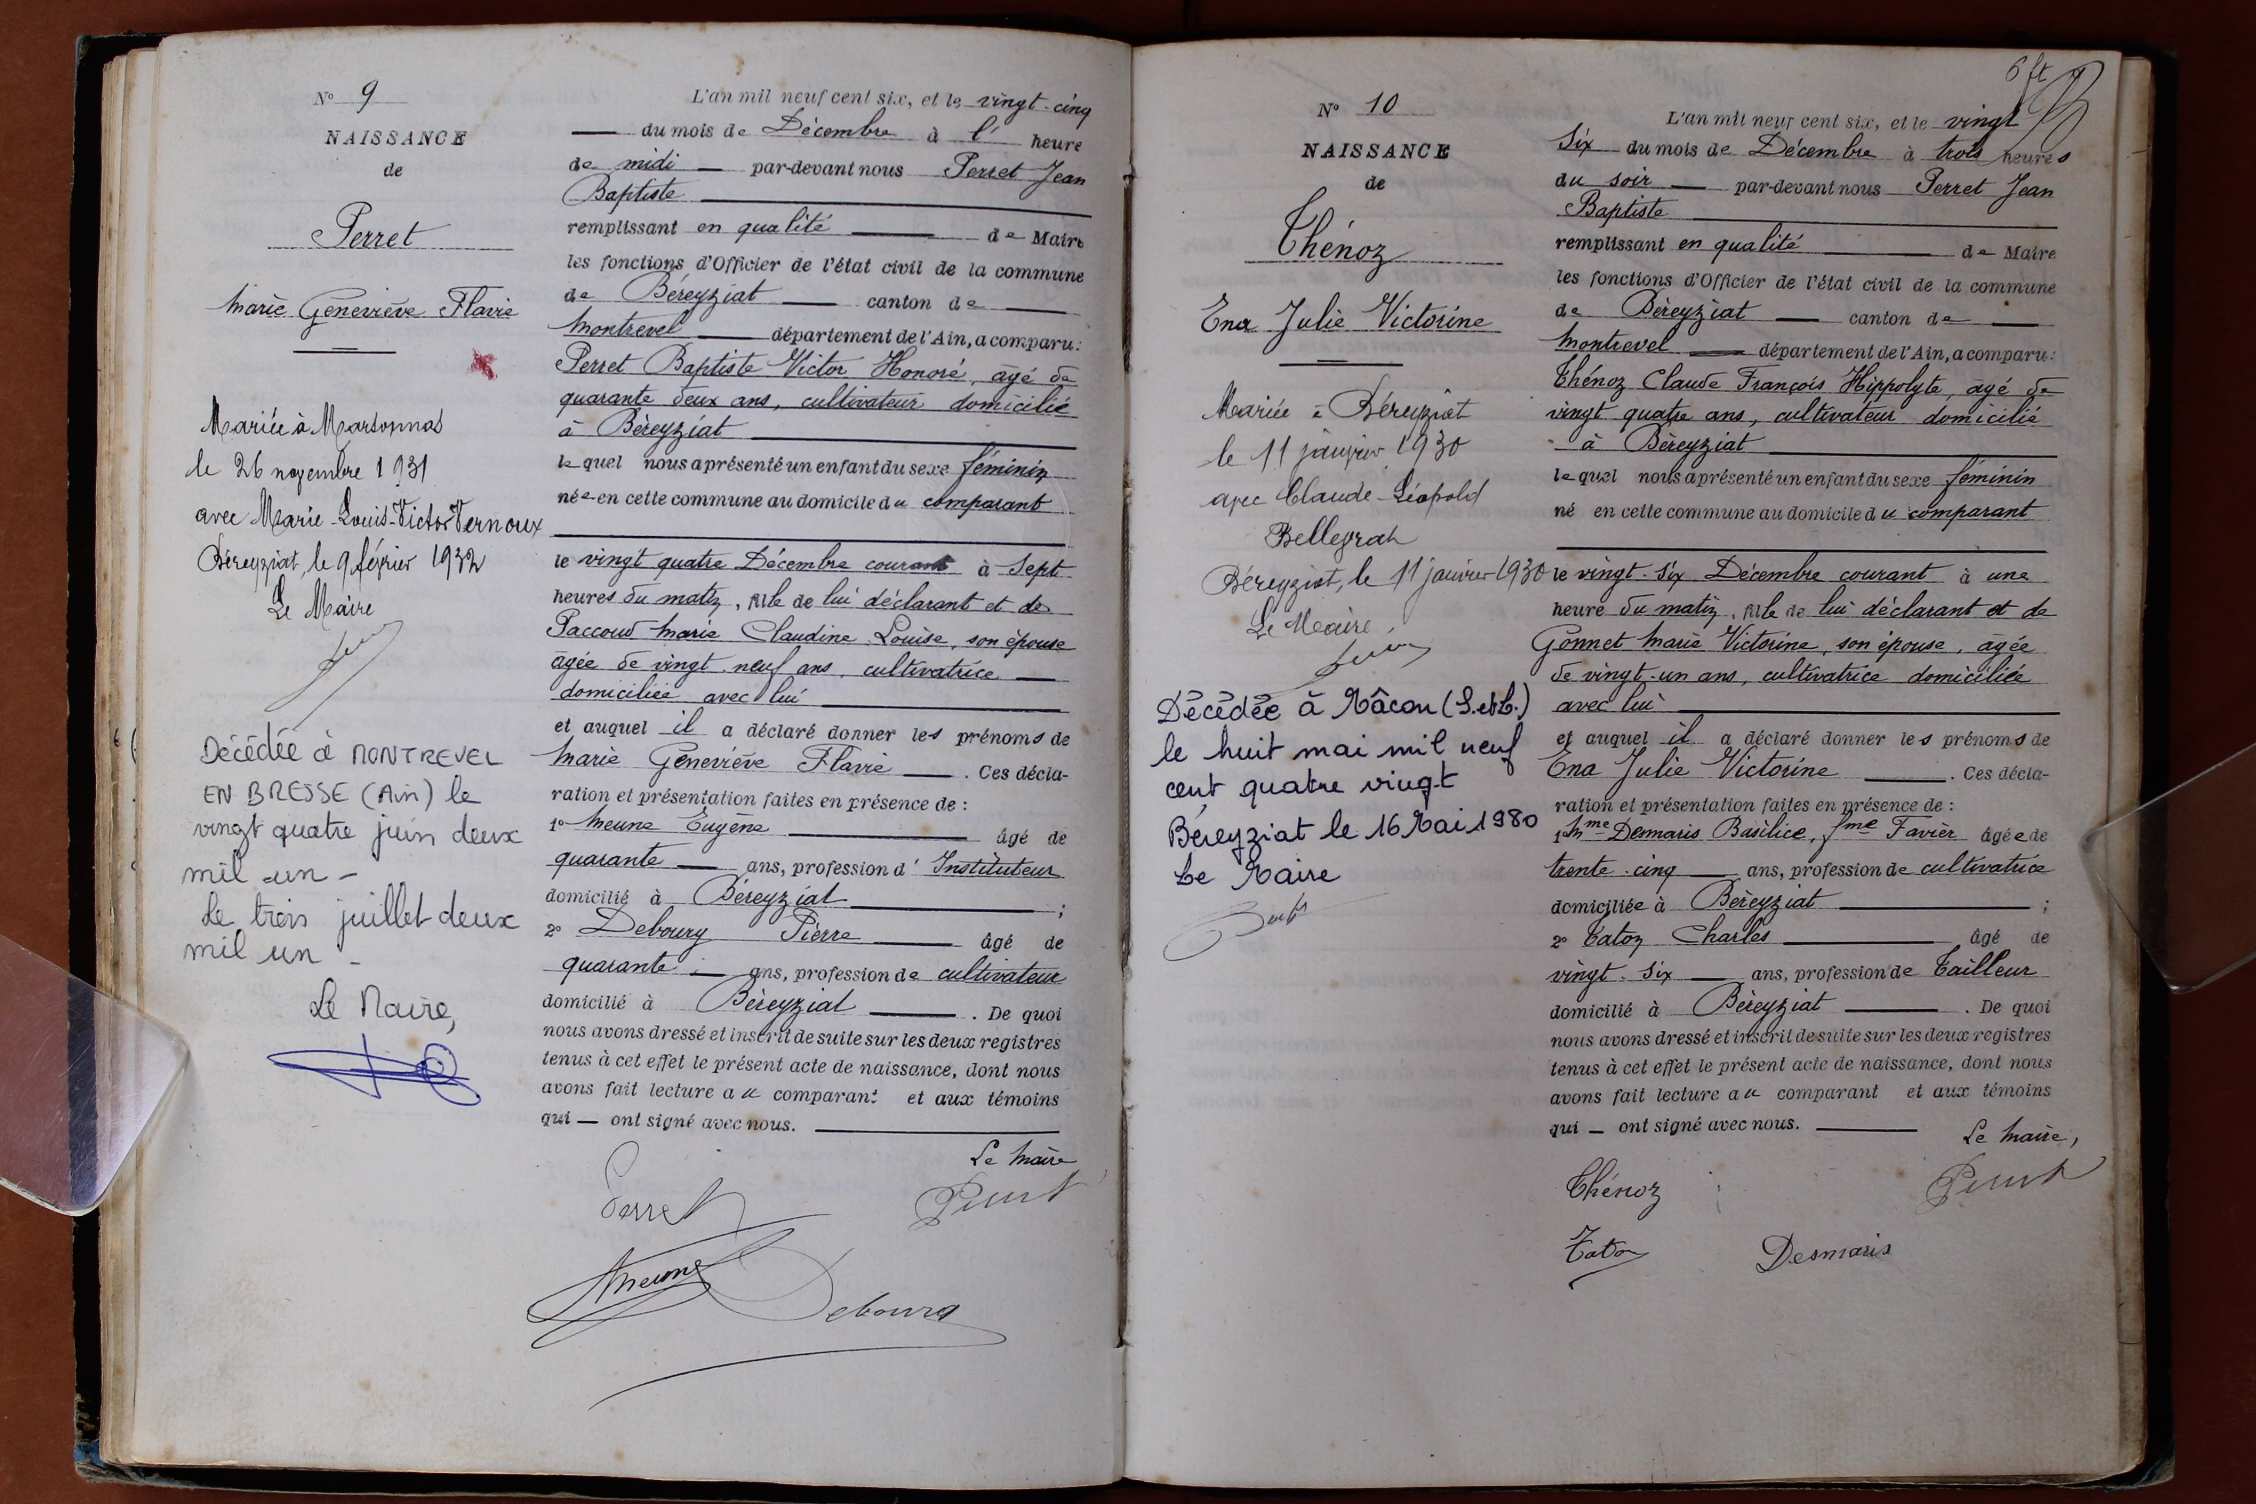 N° 9
NAISSANCE
de
Perret
Marie Geneviève Flavie
Mariée à Marsonnas
le 26 novembre 1931
avec Marie-Louis-Victor Vernoux
Béreyziat, le 9 février 1932
Le Maire
Décédée à MONTREVEL
EN BRESSE (Ain) le
vingt quatre juin deux
mil un -
Le trois juillet deux
mil un -
Le Maire,
L'an mil neuf cent six, et le vingt-cinq
du mois de Décembre à l' heure
de midi par-devant nous Perret Jean
Baptiste
remplissant en qualité de Maire
les fonctions d'Officier de l'état civil de la commune
de Béreyziat canton de
Montrevel département de l'Ain, a comparu:
Perret Baptiste Victor Honoré, âgé de
quarante deux ans, cultivateur domicilié
à Béreyziat
lequel nous a présenté un enfant du sexe féminin
née en cette commune au domicile du comparant
le vingt quatre Décembre courant à sept
heures du matin, fille de lui déclarant et de
Paccoud Marie Claudine Louise, son épouse
âgée de vingt-neuf ans, cultivatrice
domiciliée avec lui
et auquel il a déclaré donner les prénoms de
Marie Geneviève Flavie. Ces décla-
ration et présentation faites en présence de :
1° Meune Eugène âgé de
quarante ans, profession d'Instituteur
domicilié à Béreyziat ;
2° Deboury Pierre âgé de
quarante ans, profession de cultivateur
domicilié à Béreyziat. De quoi
nous avons dressé et inscrit de suite sur les deux registres
tenus à cet effet le présent acte de naissance, dont nous
avons fait lecture au comparant et aux témoins
qui — ont signé avec nous.
Le Maire
Perret
Perret
Meune
Deboury
6
N° 10
NAISSANCE
de
Thénoz
Ena Julie Victorine
Mariée à Béreyziat
le 11 janvier 1930
avec Claude-Léopold
Béreyziat, le 11 janvier 1930
Le Maire
Décédée à Mâcon (S.et L.)
le huit mai mil neuf
cent quatre vingt
Béreyziat le 16 Mai 1980
Le Maire
L'an mil neuf cent six, et le vingt
six du mois de Décembre à trois heures
du soir par-devant nous Perret Jean
Baptiste
remplissant en qualité de Maire
les fonctions d'Officier de l'état civil de la commune
de Béreyziat canton de
Montrevel département de l'Ain, a comparu:
Thénoz Claude François Hippolyte, âgé de
vingt quatre ans, cultivateur domicilié
à Béreyziat
lequel nous a présenté un enfant du sexe féminin
né en cette commune au domicile du comparant
le vingt-six Décembre courant à une
heure du matin, fille de lui déclarant et de
Gonnet Marie Victorine, son épouse, âgée
de vingt-un ans, cultivatrice domiciliée
avec lui
et auquel il a déclaré donner les prénoms de
Ena Julie Victorine. Ces décla-
ration et présentation faites en présence de :
1° Mme Desmaris Basilice, fme Favier âgée de
trente-cinq ans, profession de cultivatrice
domiciliée à Béreyziat ;
2° Taton Charles âgé de
vingt-six ans, profession de Tailleur
domicilié à Béreyziat. De quoi
nous avons dressé et inscrit de suite sur les deux registres
tenus à cet effet le présent acte de naissance, dont nous
avons fait lecture au comparant et aux témoins
qui — ont signé avec nous.
Le Maire,
Thénoz
Perret
Taton
Desmaris